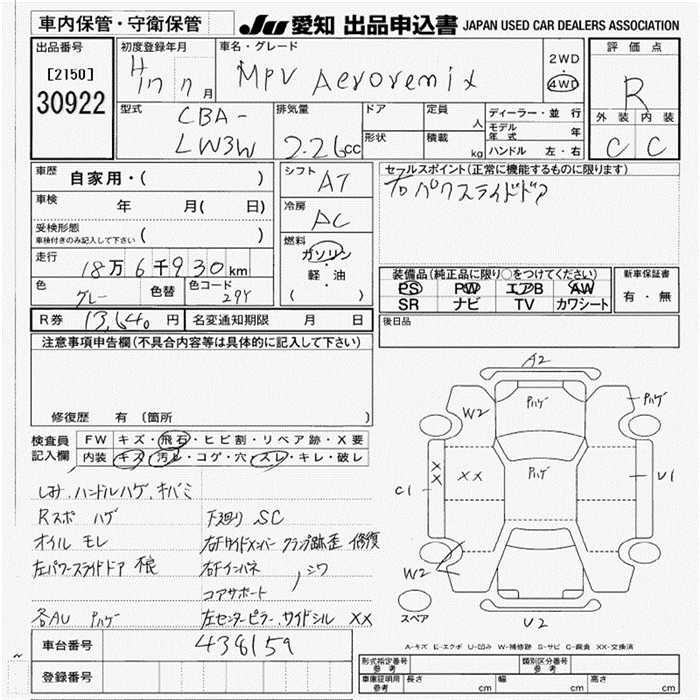 車内保管・守衛保管
JU 愛知 出品申込書 JAPAN USED CAR DEALERS ASSOCIATION
出品番号
[2150]
30922
初度登録年月
H17 7 月
車名・グレード
MPV Aeroremix
2WD
4WD
評価点
R
外装 内装
C C
型式
CBA-
LW3W
排気量
2.26cc
ドア
形状
定員
人
積載
kg
ディーラー・並行
モデル年式 年
ハンドル 左・右
車歴
自家用・( )
車検
年 月( 日)
受検形態
車検付きのみ記入して下さい ( )
走行
18万6千930km
色
グレー
色替
色コード
29Y
シフト
AT
冷房
AC
燃料
ガソリン
軽・油
( )
セールスポイント(正常に機能するものに限ります)
右パワスライドドア
装備品(純正品に限り○をつけてください)
PS PW エアB AW
SR ナビ TV カワシート
新車保証書
有・無
R券 13,640 円
名変通知期限 月 日
後日品
注意事項申告欄(不具合内容等は具体的に記入して下さい)
修復歴 有 〔箇所 〕
検査員
記入欄
FW キズ・飛石・ヒビ割・リペア跡・X要
内装 キズ・汚レ・コゲ・穴・スレ・キレ・破レ
シミ、ハンドルハゲ、キバミ
Rスポ ハゲ
オイル モレ
左パワースライドドア
各AU Pハゲ
下廻り SC
右Fサイドメンバー クランプ跡歪 修復
右Fインパネ
コアサポート 、シワ
左センターピラー、サイドシル XX
A2
W2
Pハゲ
Pハゲ
XX
XX
C1
Pハゲ
U1
W2
U2
スペア
A-キズ E-エクボ U-凹み W-補修跡 S-サビ C-腐食 XX-交換済
車台番号
438159
登録番号
形式指定番号
参考
類別区分番号
参考
車庫証明用
参考
長さ cm
幅 cm
高さ cm